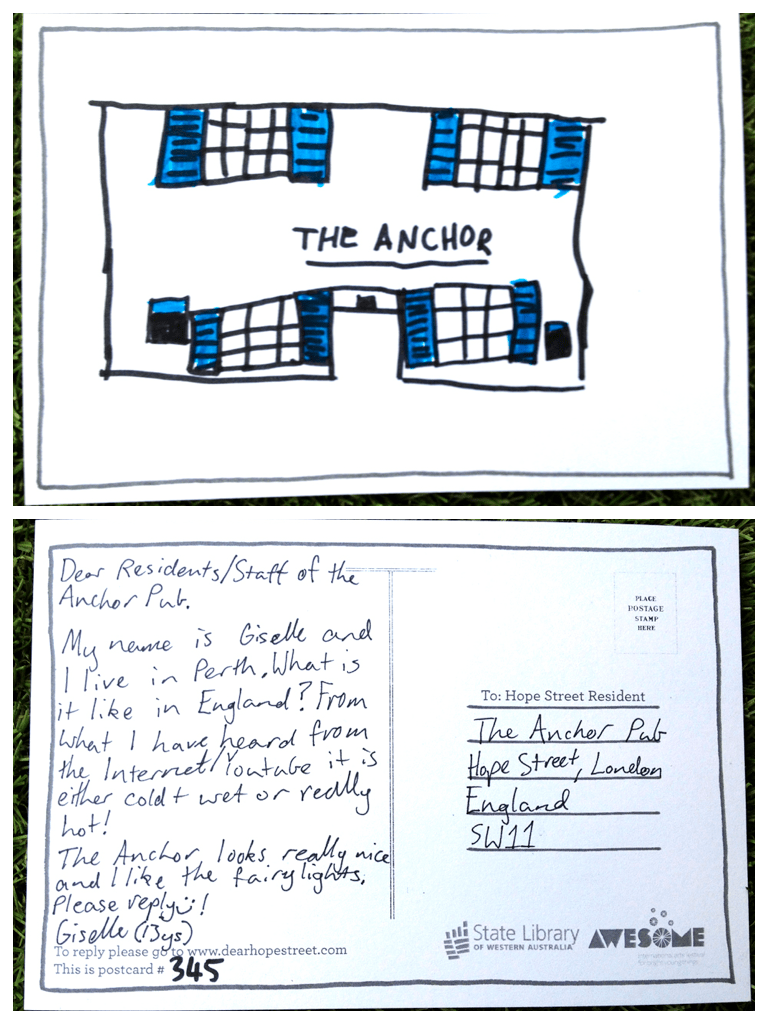 THE ANCHOR
Dear Residents/Staff of the
Anchor Pub.
My name is Giselle and
I live in Perth. What is
it like in England? From
what I have heard from
the Internet/Youtube it is
either cold + wet or really
hot!
The Anchor looks really nice
and I like the fairy lights.
Please reply :)!
Giselle (13ys)
To reply please go to www.dearhopestreet.com
This is postcard # 345
PLACE
POSTAGE
STAMP
HERE
To: Hope Street Resident
The Anchor Pub
Hope Street, London
England
SW11
State Library
OF WESTERN AUSTRALIA
AWESOME